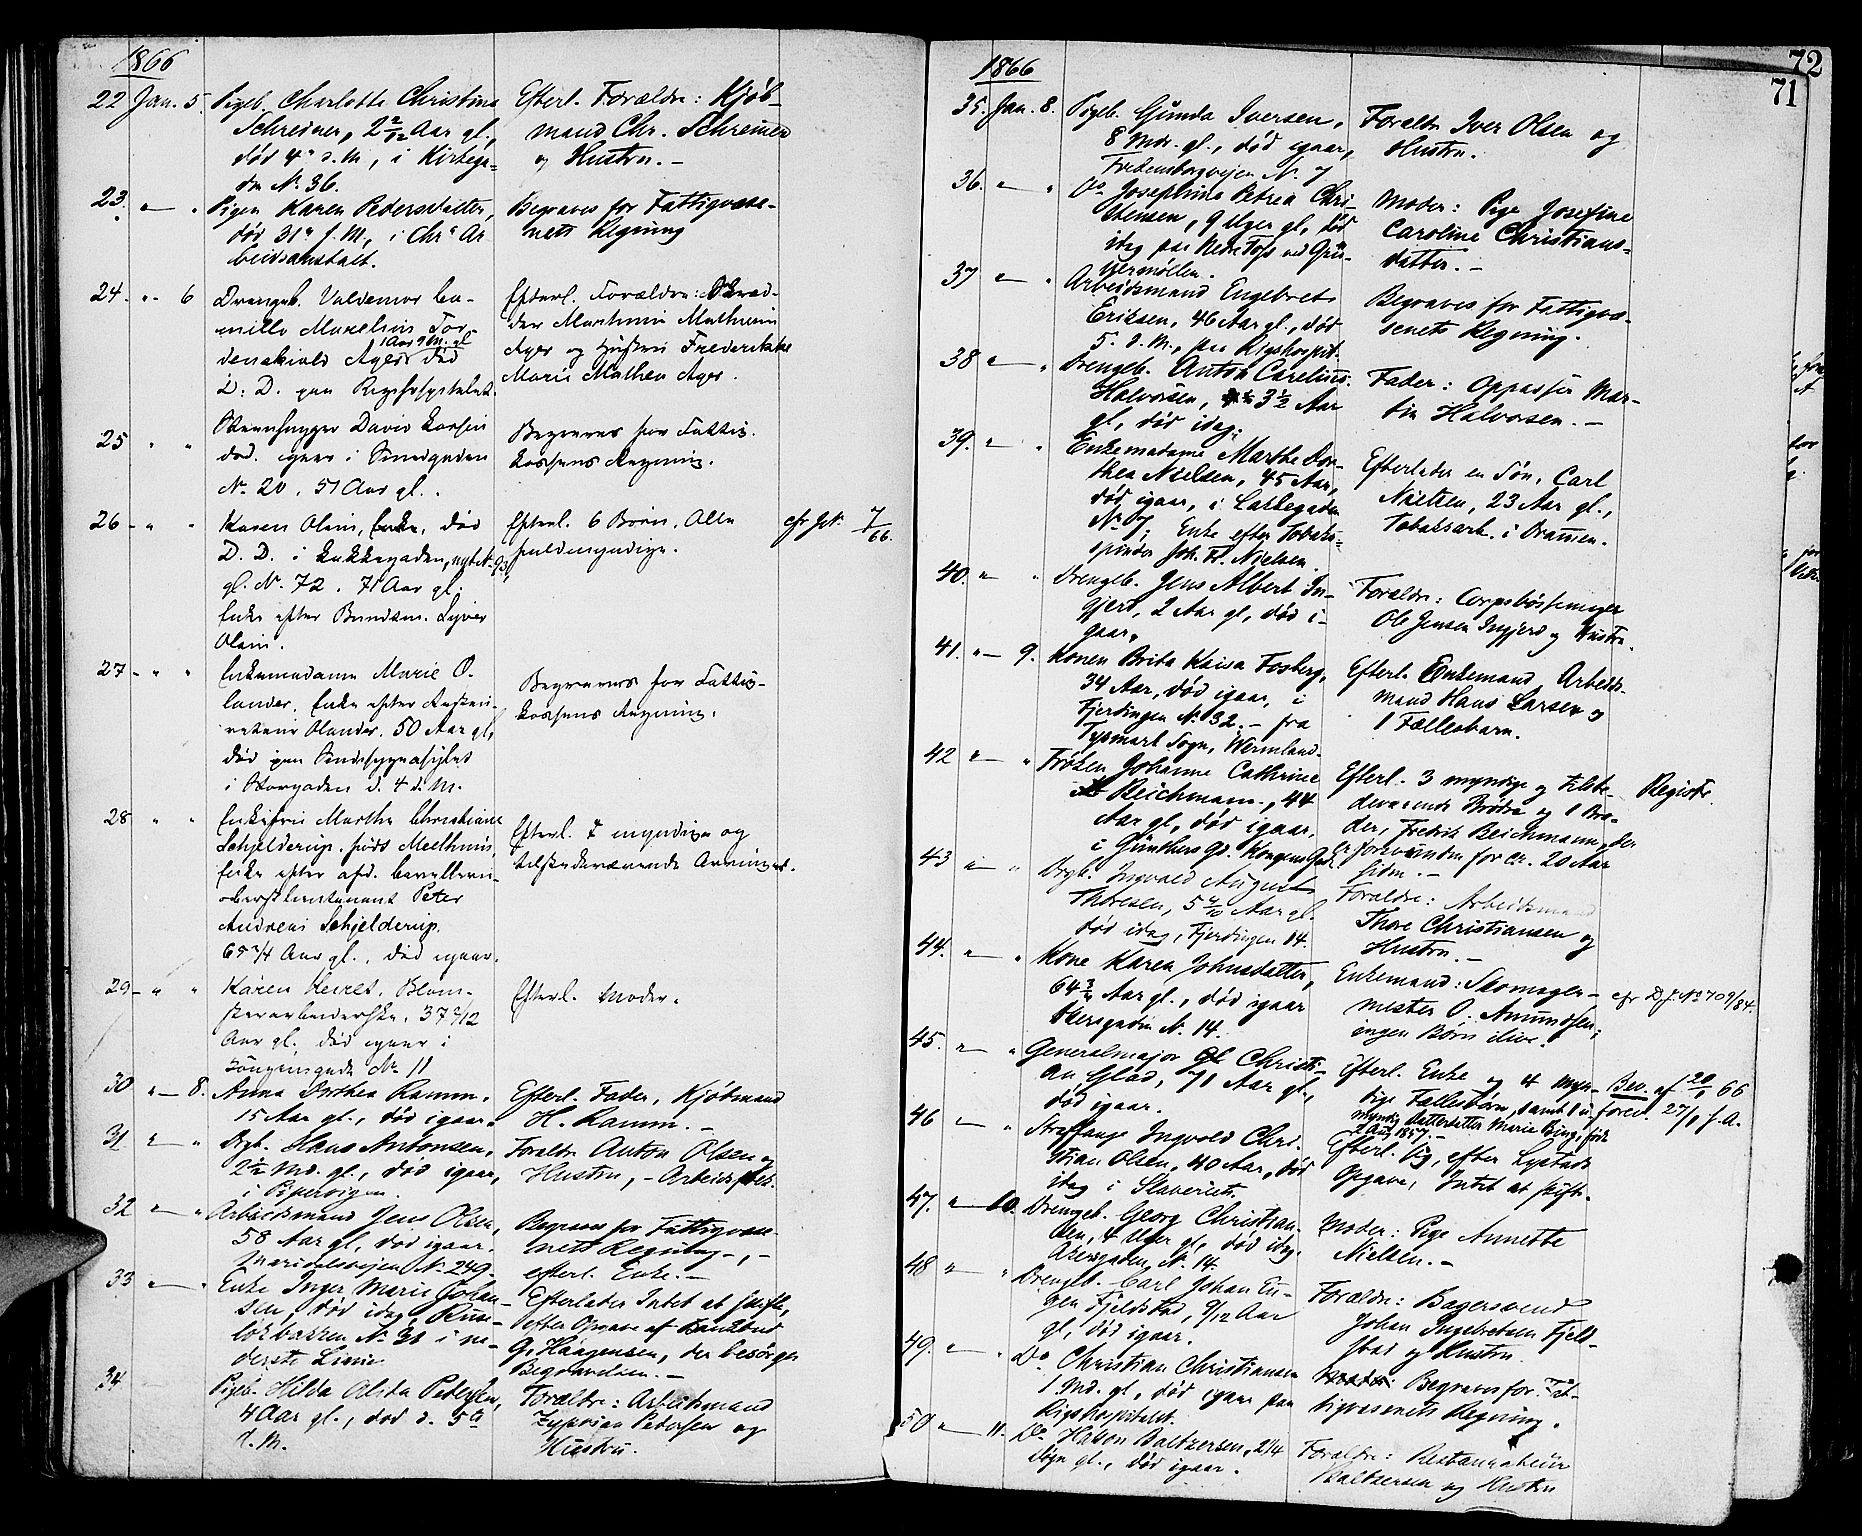 1866
22 Jan. 5. Pigeb. Charlotte Christine
Schreiner, 2 2/12 Aar gl.,
død 4de d. M., i Kirkega-
den No 36.
Efterl. Forældre: Kjøb-
mand Chr. Schreiner
og Hustru. -
23. " " Pigen Karen Pedersdatter,
død 31te f. M., i Chra Ar
beidsanstalt.
Begraves for Fattigvæse-
nets Regning
24 - " - 6 Drengeb. Valdemar Ca-
millo Marelius Tor-
denskiold Ager 1 Aar 9 M. gl død
D: D. paa Rigshospitalet.
Efterl. Forældre: Skræd-
der Marthin Mathisen
Ager og Hustru Frederikke
Marie Mathea Ager.
25 " " David Larsen
død igaar i Smedgaden
No 20, 51 Aar gl.
Begraves for Fattig-
kassens Regning.
26 - " " Karen Olsen, Enke, død
D. D. i Lakkegaden, nyt No 93,
gl. No 72. 71 Aar gl.
Enke efter Bundtm. Syver
Olsen.
Efterl. 6 Børn, Alle
fuldmyndige.
cfr 7/66.
27 - " " Enkemadame Marie O-
lander, Enke efter
Olander. 50 Aar gl,
død paa Sindssygeasylet
i Storgaden d. 4 d. M.
Begraves for Fattig-
kassens Regning.
28 " " Enkefru Marthe Christiane
Schjelderup, født
Enke efter afd. Cavalleri-
oberstlieutenant Peter
Andreas Schjelderup.
65 3/4 Aar gl., død igaar.
Efterl. 7 myndige og
tilstedeværende Arvinger.
29 - " " Karen Blom-
sterarbeiderske. 37 9/12
Aar gl. død igaar i
No 11
Efterl. Moder.
30 " - 8. Anna Dorthea Ramm.
15 Aar gl., død igaar.
Efterl. Fader, Kjøbmand
H. Ramm. -
31 " - " Drgb. Hans Antonsen,
2 1/2 Md. gl., død igaar,
i Pipervigen.
Forældre Anton Olsen og
Hustru, - Arbeidsfolk.
32 " - " Arbeidsmand Jens Olsen,
58 Aar gl, død igaar.
No 249.
Begraves for Fattigvæse-
nets Regning -, -
efterl. Enke. -
33 " - " Enke Inger Marie Johan-
sen, død idag, Ruse-
løkbakken No 31 i ne-
derste Linie
Efterlader Intet at skifte,
efter Opgave af
G. Haagensen, der besørger
Begravelsen. -
34 Pigeb. Hilda Alida Pedersen,
4 Aar gl., død d. 5te
d. M.
Forældre: Arbeidsmand
Zyprian Pedersen og
Hustru.
72
71
1866
35. Jan. 8. Pigeb. Gunda Iversen,
8 Mdr. gl., død igaar,
Fredensborgveien No 7
Forældre Iver Olsen og
Hustru.
36. " - " Do Josephine Petrea Chri-
stensen, 9 Uger gl, død
idag paa Nedre Foss ved Grü-
nermøllen.
Moder: Pige Josefine
Caroline Christians-
datter. -
37 " - " Arbeidsmand Engebret
Eriksen, 46 Aar gl., død
5. d. M., paa Rigshospit.
Begraves for Fattigvæ-
senets Regning.
38 " - " Drengeb. Anton Carelius
Halvorsen, 3 1/2 Aar
gl, død idag.
Fader: Oppasser Mar-
tin Halvorsen. -
39. " - " Enkemadame Marthe Dor-
thea Nielsen, 45 Aar,
død igaar, i Lakkegaden
No 7, Enke efter Tobaks-
spinder Joh. Fr. Nielsen.
Efterlader en Søn, Carl
Nielsen, 23 Aar gl.,
Tobaksarb. i Drammen.
40. " - " Drengeb. Jens Albert In-
gjerd, 2 Aar gl, død i-
gaar.
Forældre: Corpsbøssemager
Ole Jensen Ingjerd og Hustru.
41. " - 9. Konen Brita Kaisa Fosberg,
34 Aar, død igaar, i
Fjerdingen No 32. - fra
Sogn, Wermland.
Efterl. Enkemand, Arbeids-
mand Hans Larsen og
1 Fællesbarn.
42 " - " Frøken Johanne Cathrine
Beichmann, 44
Aar gl, død igaar,
i Günthers Gd. Kongens Gade.
Efterl. 3 myndige og tilste-
deværende Brødre og 1 Bro-
der, Fredrik Beichmann, der
er forsvunden for ca. 20 Aar
siden. -
Registr.
43 " - " Drgb. Ingvald August
Thoresen, 5 4/10 Aar gl.
død idag, Fjerdingen 14.
Forældre: Arbeidsmand
Thore Christiansen og
Hustru. -
44. " - " Kone Karen Johnsdatter,
64 3/4 Aar gl., død igaar
Akersgaden No 14.
Enkemand: Skomager-
mester O. Amundsen,
ingen Børn ilive.
cfr D. J. No 709/84.
45. " - " Generalmajor Christi-
an Glad, 71 Aar gl.,
død igaar.
Efterl. Enke og 4 myn-
dige Fællesbørn, samt 1 u-
myndig Datterdatter Marie Bing, født
2 Aug 1857. -
Bev. af 20/1 66
forev. 27/1 s. A.
46 " - " Straffange Ingvold Chri-
stian Olsen, 40 Aar, død
idag i Slaveriet.
Efterl. sig, efter
Opgave, Intet at skifte.
47. " - 10. Drengeb. Georg Christian-
sen, 4 Uger gl, død idag.
Akersgaden, No 14.
Moder: Pige Annette
Nielsen. -
48 " - " Drengeb. Carl Johan Eu-
gen Fjeldstad, 9/12 Aar
gl, død igaar.
Forældre: Bagersvend
Johan Ingebretsen Fjeld-
stad og Hustru.
49. " - " Do Christian Christiansen
1 Md. gl, død igaar paa
Rigshospitalet.
Begraves for Fat-
tigvæsenets Regning.
50 " - 11. Do Hakon Baltzersen, 2 1/4
Døgn gl., død igaar.
Forældre: Restauratør
Baltzersen og Hustru